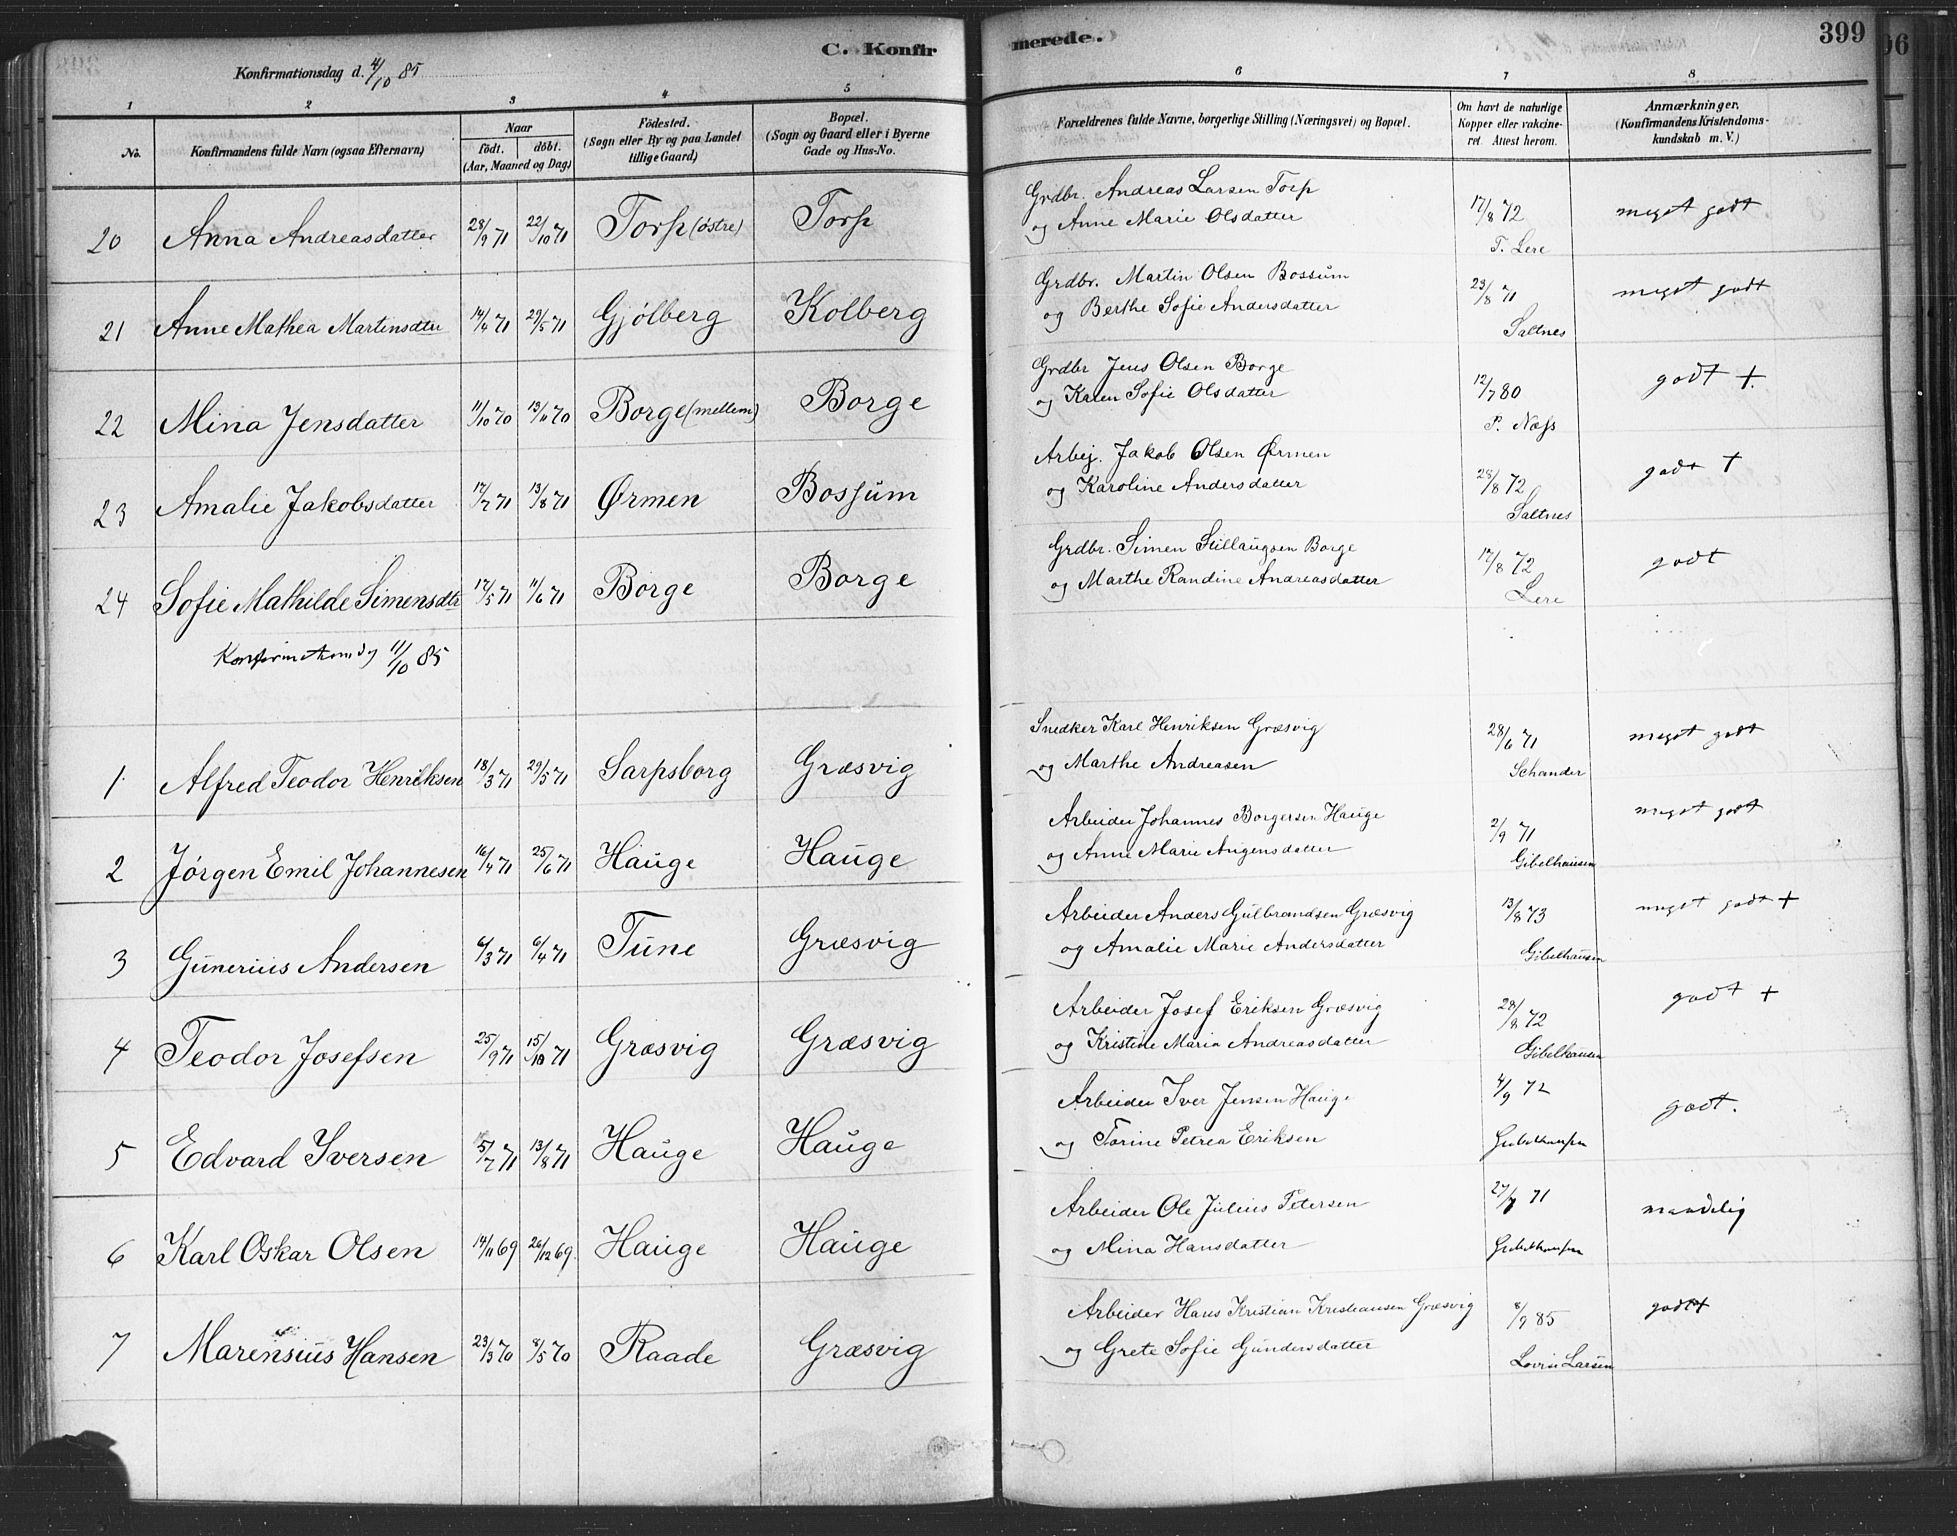 C. Konfirmerede.
399
96
Konfirmationsdag d. 4/10 85
1 2 3 4 5 6 7 8
No.
Konfirmandens fulde Navn (ogsaa Efternavn)
Naar
født. døbt.
(Aar, Maaned og Dag)
Fødested.
(Sogn eller By og paa Landet
tillige Gaard)
Bopæl.
(Sogn og Gaard eller i Byerne
Gade og Hus-No.
Forældrenes fulde Navne, borgerlige Stilling (Næringsvei) og Bopæl.
Om havt de naturlige
Kopper eller vakcine-
ret Attest herom.
Anmærkninger.
(Konfirmandens Kristendoms-
kundskab m. V.)
20 Anna Andreasdatter 28/9 71 22/10 71 Torp (østre) Torp
Grdbr. Andreas Larsen Torp
og Anne Marie Olsdatter
17/8 72
T. Lere
meget godt
21 Anne Mathea Martinsdtr 14/4 71 29/5 71 Gjølberg Kolberg
Grdbr. Martin Olsen Bossum
og Berthe Sofie Andersdatter
23/8 71
Saltnes
meget godt
22 Mina Jensdatter 11/10 70 13/11 70 Borge (mellem) Borge
Grdbr Jens Olsen Borge
og Karen Sofie Olsdatter
12/7 80
P. Næss
godt +
23 Amalie Jakobsdatter 17/7 71 13/8 71 Ørmen Bossum
Arbej. Jakob Olsen Ørmen
og Karoline Andersdatter
28/8 72
Saltnes
godt +
24 Sofie Mathilde Simensdtr 17/5 71 11/6 71 Borge Borge
Grdbr. Simen Stillaugsen Borge
og Marthe Randine Andreasdatter
17/8 72
Lere
godt
Konfirmationsdag 11/10 85
1 Alfred Teodor Henriksen 18/3 71 29/5 71 Sarpsborg Græsvig
Snedker Karl Henriksen Græsvig
og Marthe Andreasen
28/6 71
Schander
meget godt
2 Jørgen Emil Johannesen 16/4 71 25/6 71 Hauge Hauge
Arbeider Johannes Borgersen Hauge
og Anne Marie Augensdatter
2/9 71
Gibelhausen
meget godt
3 Gunerius Andersen 6/3 71 6/4 71 Tune Græsvig
Arbeider Anders Gulbrandsen Græsvig
og Amalie Marie Andersdatter
13/8 73
Gibelhausen
meget godt +
4 Teodor Josefsen 25/9 71 15/10 71 Græsvig Græsvig
Arbeider Josef Eriksen Græsvig
og Kristine Maria Andreasdatter
28/8 72
Gibelhausen
godt +
5 Edvard Iversen 5/7 71 13/8 71 Hauge Hauge
Arbeider Iver Jensen Hauge
og Torine Petrea Eriksen
4/9 72
Gibelhausen
godt.
6 Karl Oskar Olsen 14/11 69 26/12 69. Hauge Hauge
Arbeider Ole Julius Petersen
og Mina Hansdatter
27/7 71
Gibelhausen
maadelig
7 Marensius Hansen 23/3 70 8/5 70 Raade Græsvig
Arbeider Hans Kristian Kristiansen Græsvig
og Grete Sofie Gundersdatter
8/7 85
Lovise Larsen
godt+